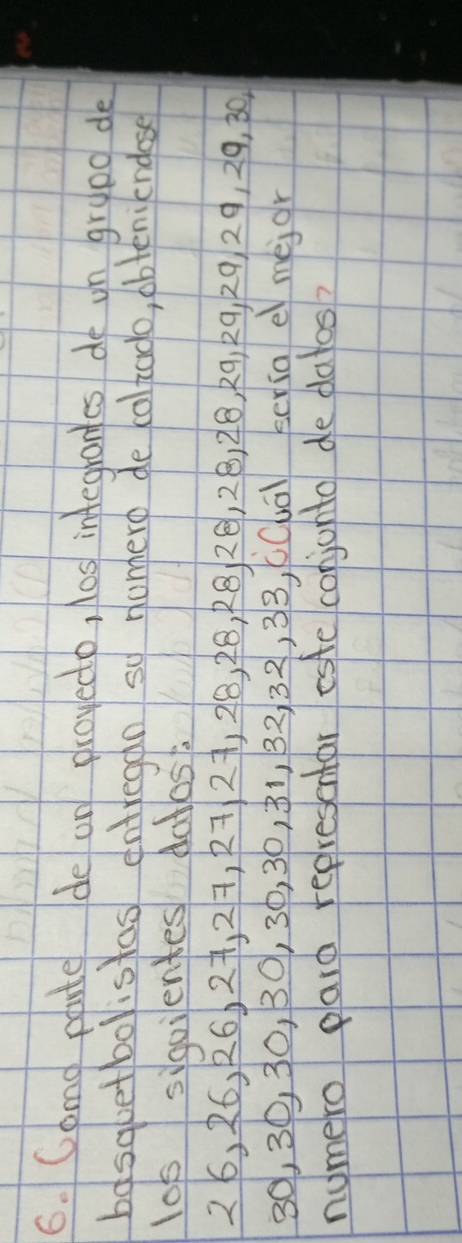 6. Como parte de un proyecto, los integrantes de un grupo de
basquetbolistas entregan su numero de calzado, obteniendose
los siguientes datos:
26, 26, 26, 27, 27, 27, 27, 27, 28, 28, 28, 28, 28, 28, 28, 29, 29, 29, 29, 29, 30,
30, 30, 30, 30, 30, 30, 31, 32, 32, 32, 33, ¿Cuál sería el mejor
numero para representar este conjunto de datos?